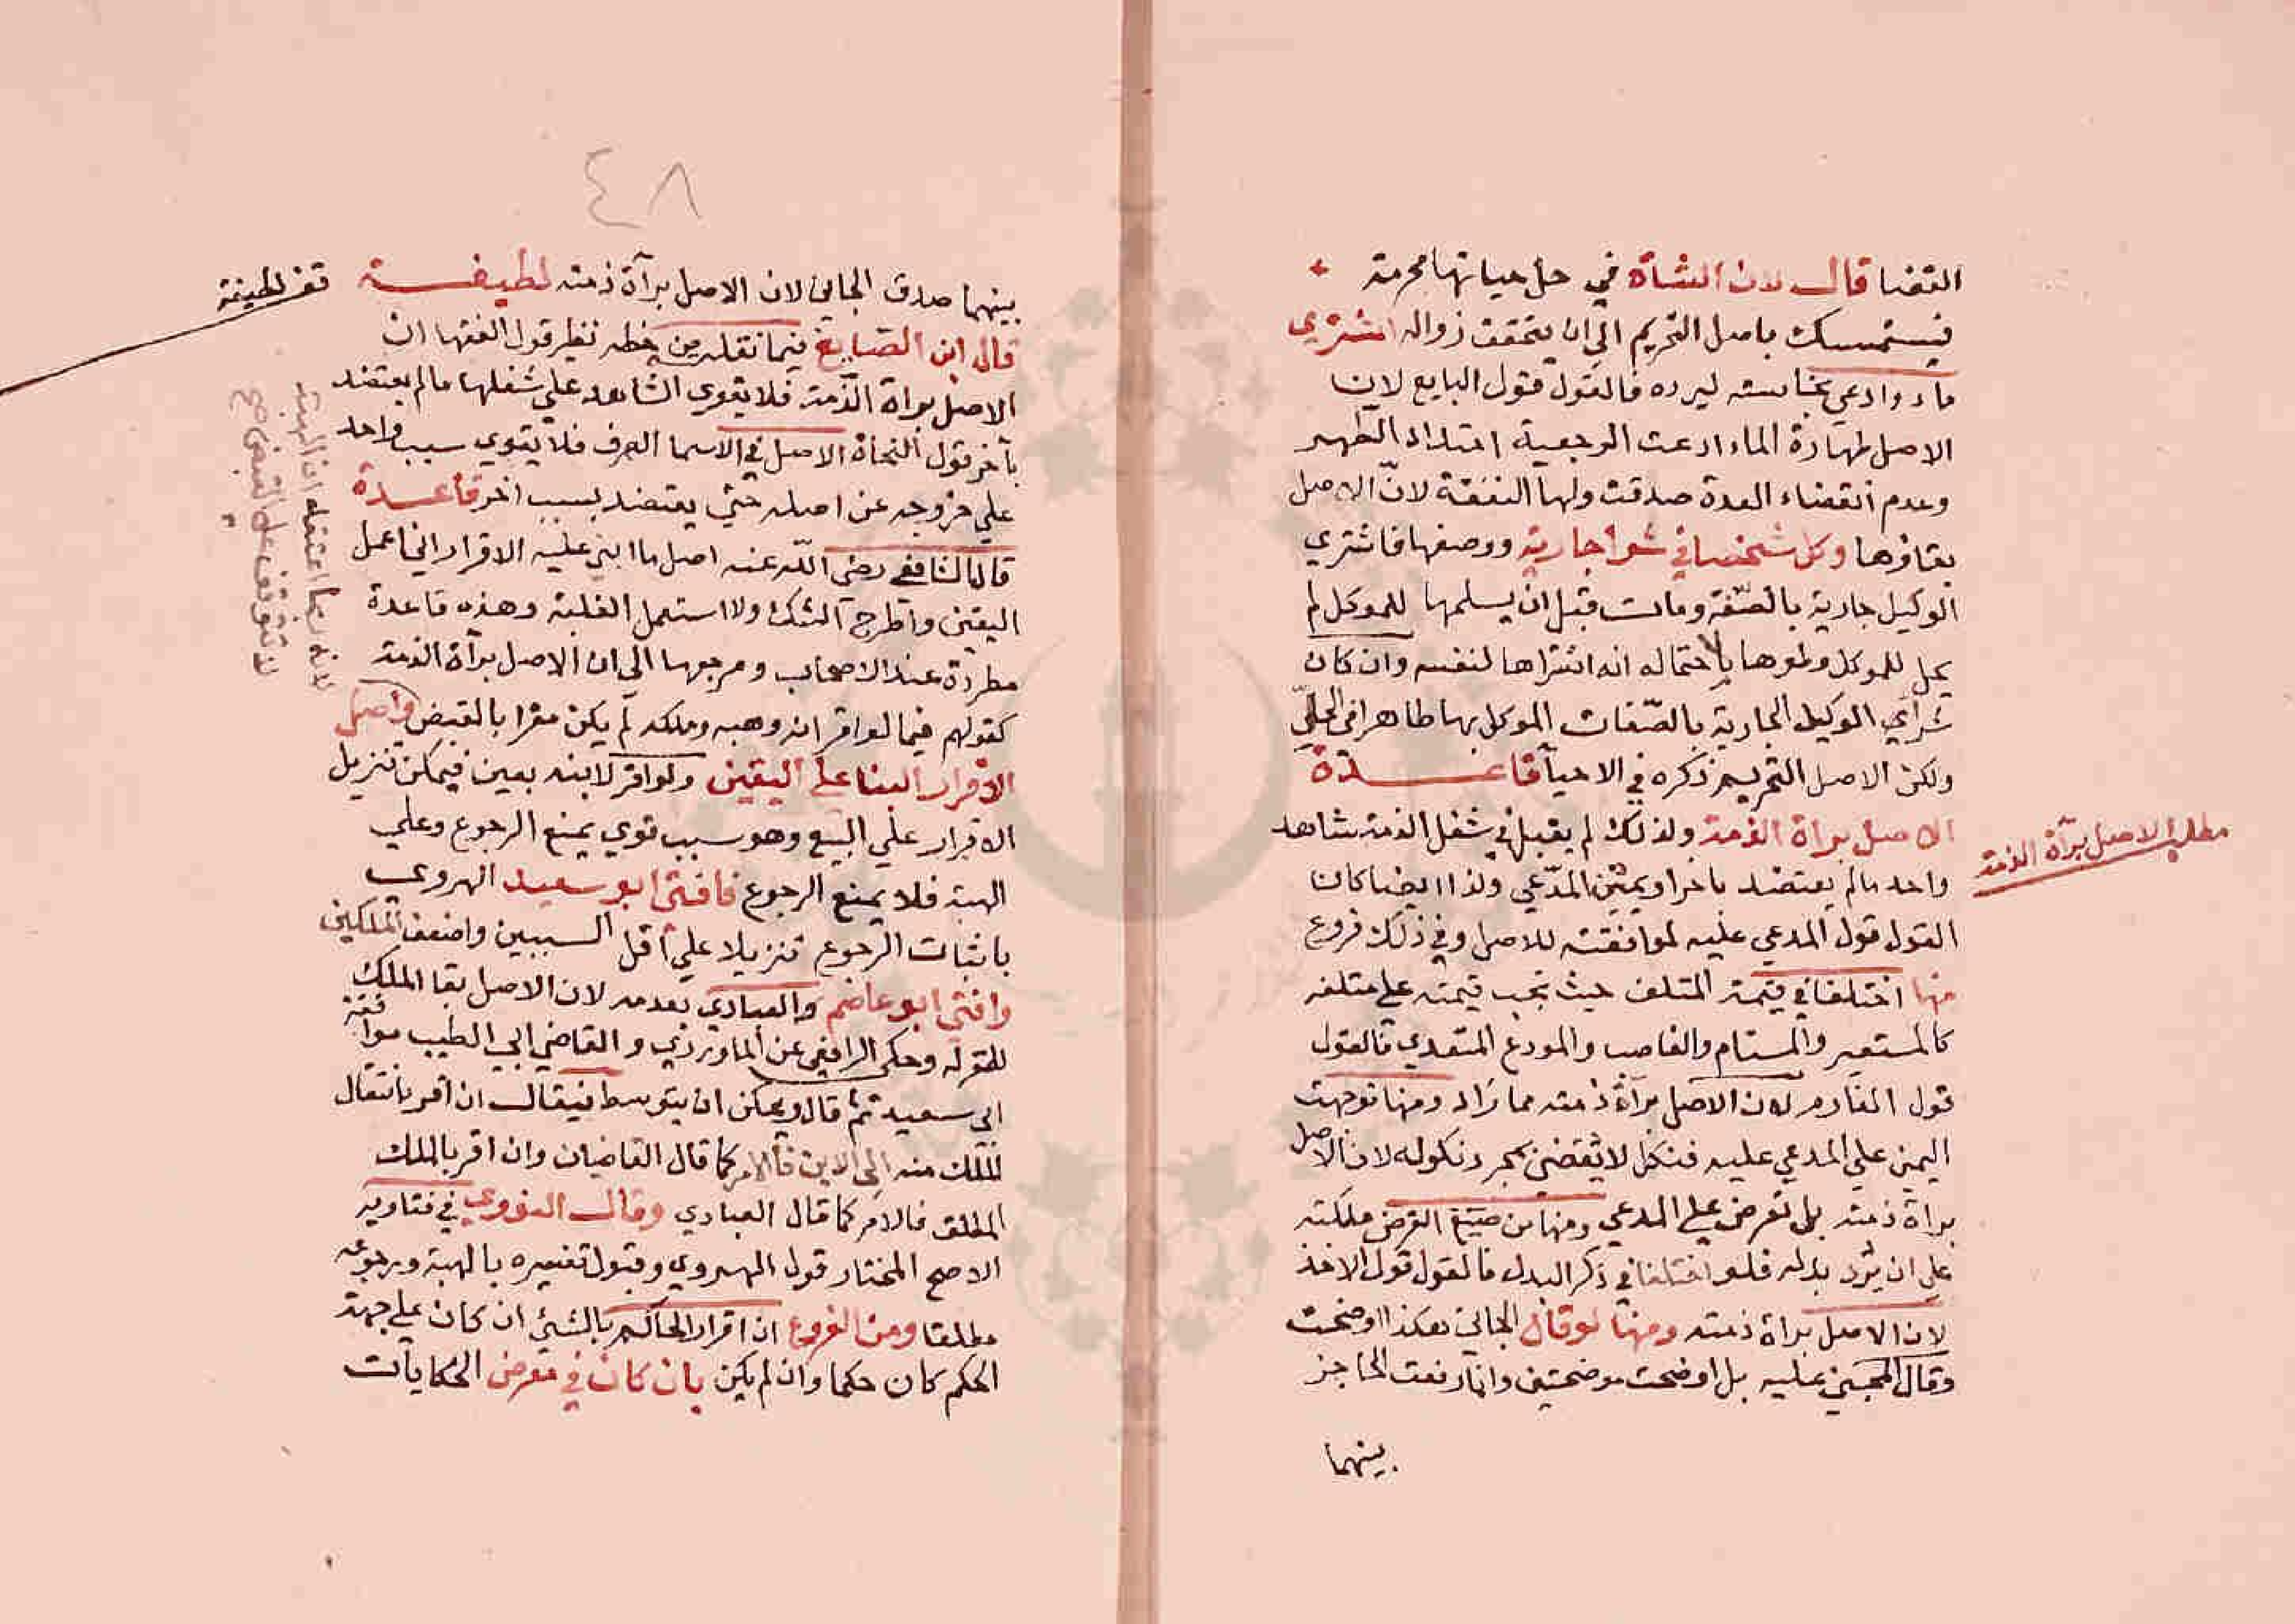 القضا قال لان الشاة في حل حياتها محرمة
فيستمسك باصل التحريم الي ان يتحقق زواله اشتري
ماء وادعي نجاسته ليرده فالقول قول البايع لان
الاصل طهارة الماء ادعت الرجعية امتداد الطهر
وعدم انقضاء العدة صدقت ولها النفقة لانّ الاصل
بقاوها وكل شخصا في شرا جارية ووصفها فاشتري
الوكيل جارية بالصّفة ومات قبل ان يسلمها للموكل لم
يحل للموكل وطوها لاحتماله انه اشتراها لنفسه وان كان
شرآي الوكيل الجارية بالصّفات الموكل بها ظاهرا في الحلّ
ولكن الاصل التحريم ذكره في الاحيآ قاعدة
الاصل براة الذمة ولذلك لم يقبل في شغل الذمة شاهد
مطلب الاصل برآة الذمة
واحد مالم يعتضد باخر او يمين المدّعي ولذا ايضا كان
القول قول المدعي عليه لموافقته للاصل وفي ذلك فروع
منها اختلفا في قيمة المتلف حيث تجب قيمته علي متلفه
كالمستعير والمستام والغاصب والمودع المتعدي فالقول
قول الغارم لان الاصل برآة ذمته مما زاد ومنها توجهت
اليمين علي المدعي عليه فنكل لا يقضي بمجرد نكوله لان الاصل
براة ذمته بل تعرض علي المدعي ومنها من صيغ القرض ملكته
علي ان تردّ بدله فلو اختلفا في ذكر البدل فالقول قول الاخذ
لان الاصل براة ذمته ومنها لو قال الجاني هكذا اوضحت
وقال المجني عليه بل اوضحت موضحتين وانا رفعت الحاجز
بينهما
٤٨
بينهما صدق الجاني لان الاصل برآة ذمته لطيفة
قف لطيفة
قال ابن الصايغ فيما نقلته من خطه نظير قول الفقها ان
الاصل براة الذّمة فلا يقوي الشاهد علي شغلها مالم يعتضد
بآخر قول النحاة الاصل في الاسما الصرف فلا يقوي سبب واحد
علي خروجه عن اصله حتي يعتضد بسبب اخر قاعدة
قال الشافعي رضي اللّه عنه اصل ما ابني عليه الاقرار اني اعمل
اليقين واطرح الشك ولا استعمل الغلبة وهذه قاعدة
مطردة عند الاصحاب ومرجعها الي ان الاصل برآة الذمة
كقولهم فيما لو اقر انه وهبه وملكه لم يكن مقرا بالقبض واصل
لانه ربما اعتقد ان الهبة
لا تتوقف علي القبض صح
الاقرار البنا علي اليقين ولو اقر لابنه بعين فيمكن تنزيل
الاقرار علي البيع وهو سبب قوي يمنع الرجوع وعلي
الهبة فلا يمنع الرجوع فافتي ابو سعيد الهروي
باثبات الرجوع تنزيلا علي اقل السببين واضعف الملكين
وافتي ابو عاصم والعبادي بعدمه لان الاصل بقا الملك
للمقر له وحكي الرافعي عن الماوردي والقاضي ابي الطيب موافقة
ابي سعيد ثم قال ويمكن ان يتوسط فيقال ان اقر بانتقال
الملك منه الي الابن فالامر كما قال القاضيان وان اقر بالملك
المطلق فالامر كما قال العبادي وقال النووي في فتاويه
الاصح المختار قول الهروي وقبول تفسيره بالهبة ورجوعه
مطلقا ومن الفروع ان اقرار الحاكم بالشئ ان كان علي جهة
الحكم كان حكما وان لم يكن بان كان في معرض الحكايات